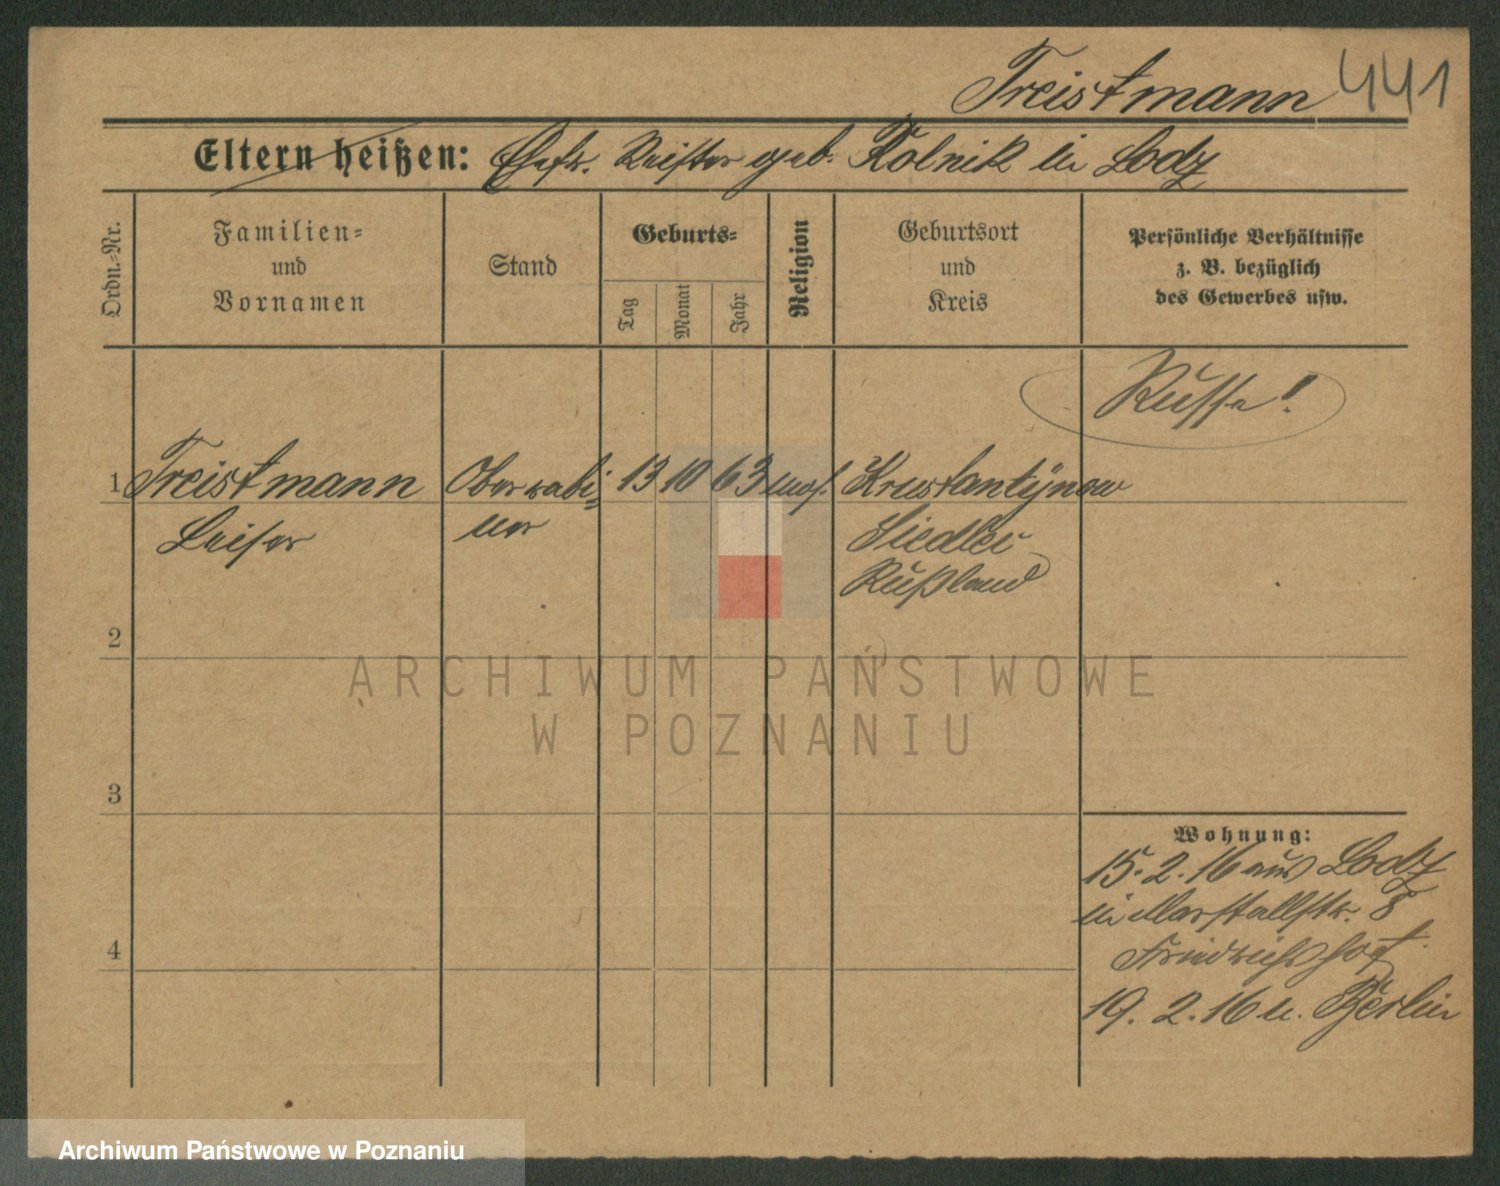 Treistmann 441
Eltern heißen: Ehefr. Reister geb. Rolnik in Lodz
Ordn.-Nr.
Familien-
und
Vornamen
Stand
Geburts-
Tag
Monat
Jahr
Religion
Geburtsort
und
Kreis
Persönliche Verhältnisse
z. B. bezüglich
des Gewerbes usw.
Russe!
1 Treistmann Oberrabi- 13 10 63 mos. Krustantynow
Leiser ner Siedlei
Rußland
2
ARCHIWUM PAŃSTWOWE
W POZNANIU
3
Wohnung:
15. 2. 16 aus Lodz
in Marstallstr. 8
4
Friedrichshof
19. 2. 16 n. Berlin
Archiwum Państwowe w Poznaniu